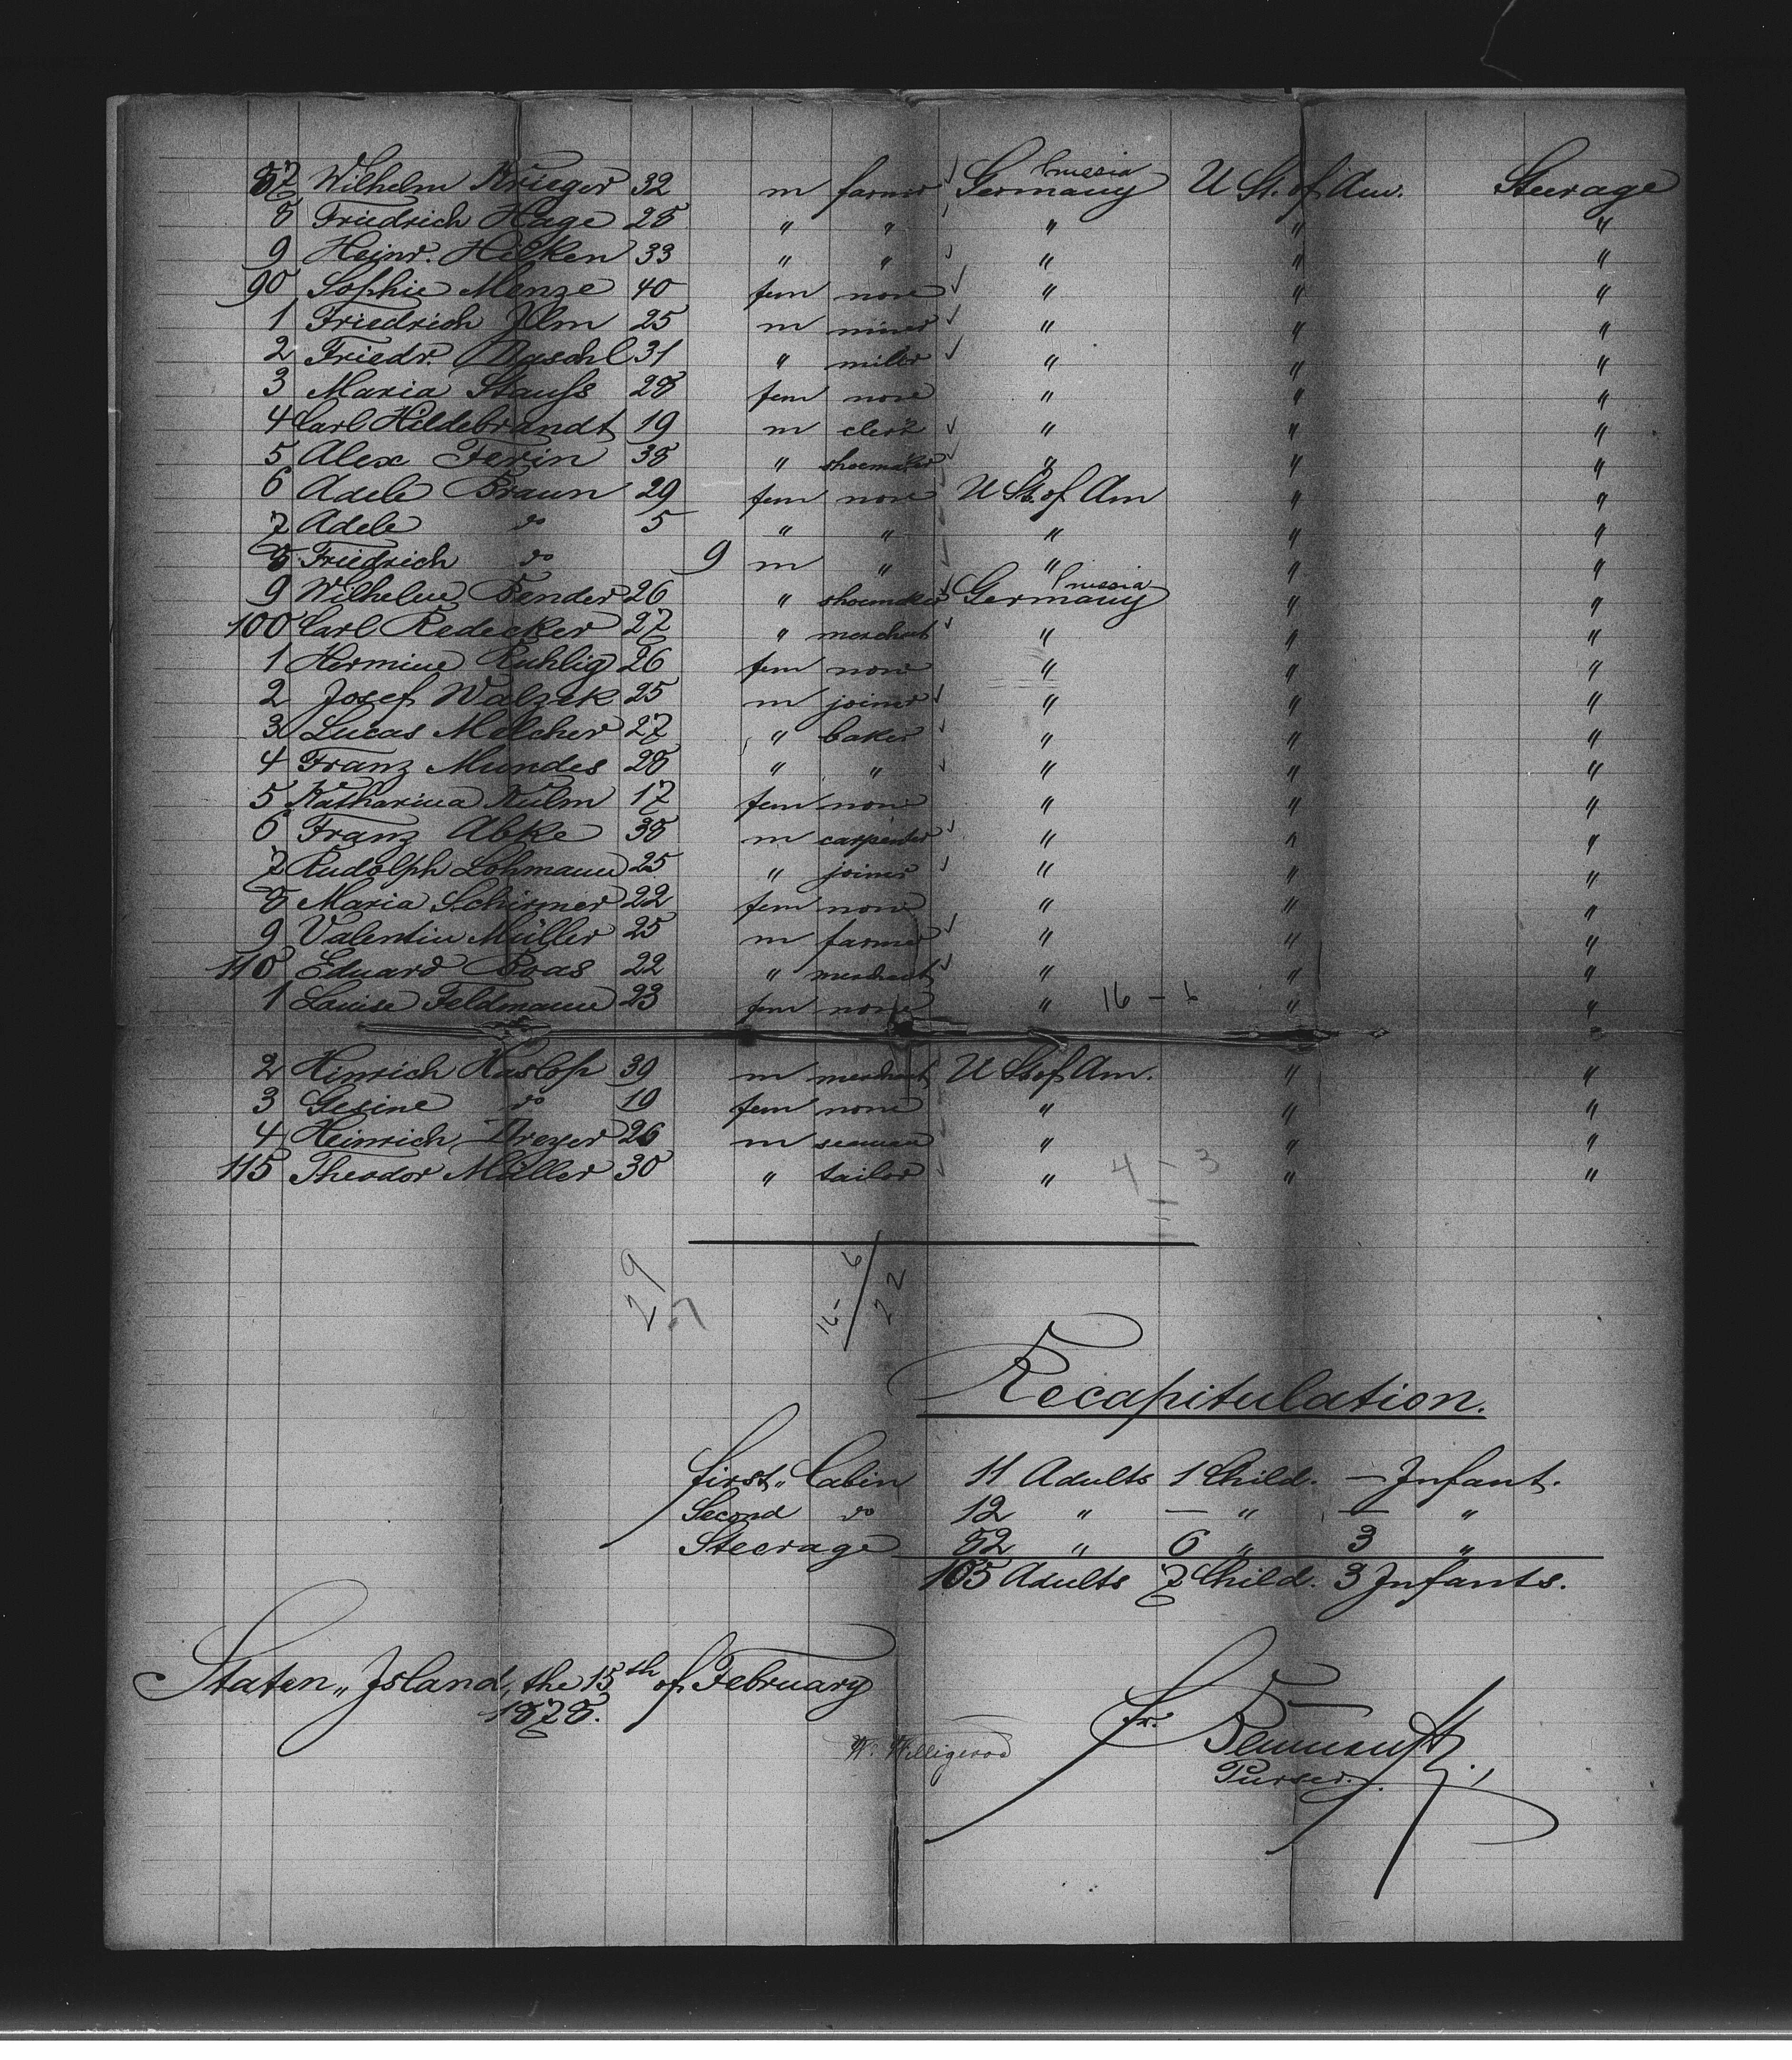 87 Wilhelm Krieger 32 m farmer Germany Prussia U St. of Am. Steerage
8 Friedrich Hage 28 " " " " "
9 Heinr. Hilken 33 " " " " "
90 Sophie Menze 40 fem none " " "
1 Friedrich Ilm 25 m miner " " "
2 Friedr. 31 " miller " " "
3 Maria Stauss 28 fem none " " "
4 Carl Hildebrandt 19 m clerk " " "
5 Alex Ferin 38 " shoemaker " " "
6 Adele Braun 29 fem none U St. of Am " "
7 Adele do 5 " " " " "
8 Friedrich do 9 m " " " "
9 Wilhelm Bender 26 " shoemaker Germany Prussia " "
100 Carl Redecker 27 " merchant " " "
1 Hermine Ruhlig 26 fem none " " "
2 Josef Walzek 25 m joiner " " "
3 Lucas Melcher 27 " baker " " "
4 Franz Mundes 28 " " " " "
5 Katharina Kulm 17 fem none " " "
6 Franz Abke 38 m carpenter " " "
7 Rudolph Lohmann 25 " joiner " " "
8 Maria Schirmer 22 fem none " " "
9 Valentin Müller 25 m farmer " " "
110 Eduard Boas 22 " merchant " " "
1 Louise Feldmann 23 fem none " 16 - 6 " "
2 Hinrich Haslop 39 m merchant U St of Am. " "
3 Gesine do 19 fem none " " "
4 Heinrich Dreyer 26 m seaman " " "
115 Theodor Müller 30 " tailor " 4 - 3 " "
29
7
16 - 6
22
Recapitulation.
First " Cabin 11 Adults 1 Child. — Infant.
Second do 12 " — " — "
Steerage 82 " 6 " 3 "
105 Adults 7 Child. 3 Infants.
Staten " Island, the 15th of February
1878.
W. Willigerod
Fr.
Purser.